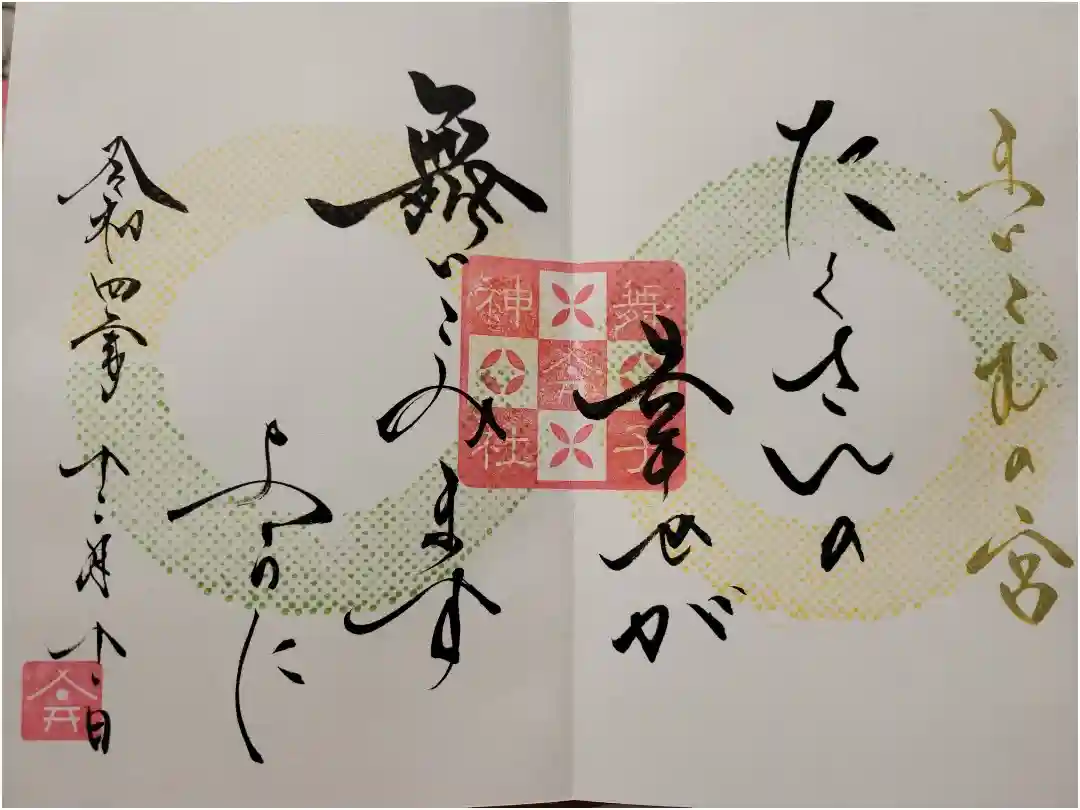 まいこむの宮
たくさんの
幸せが
舞いこみます
ように
令和四年十一月十一日
舞子
神社